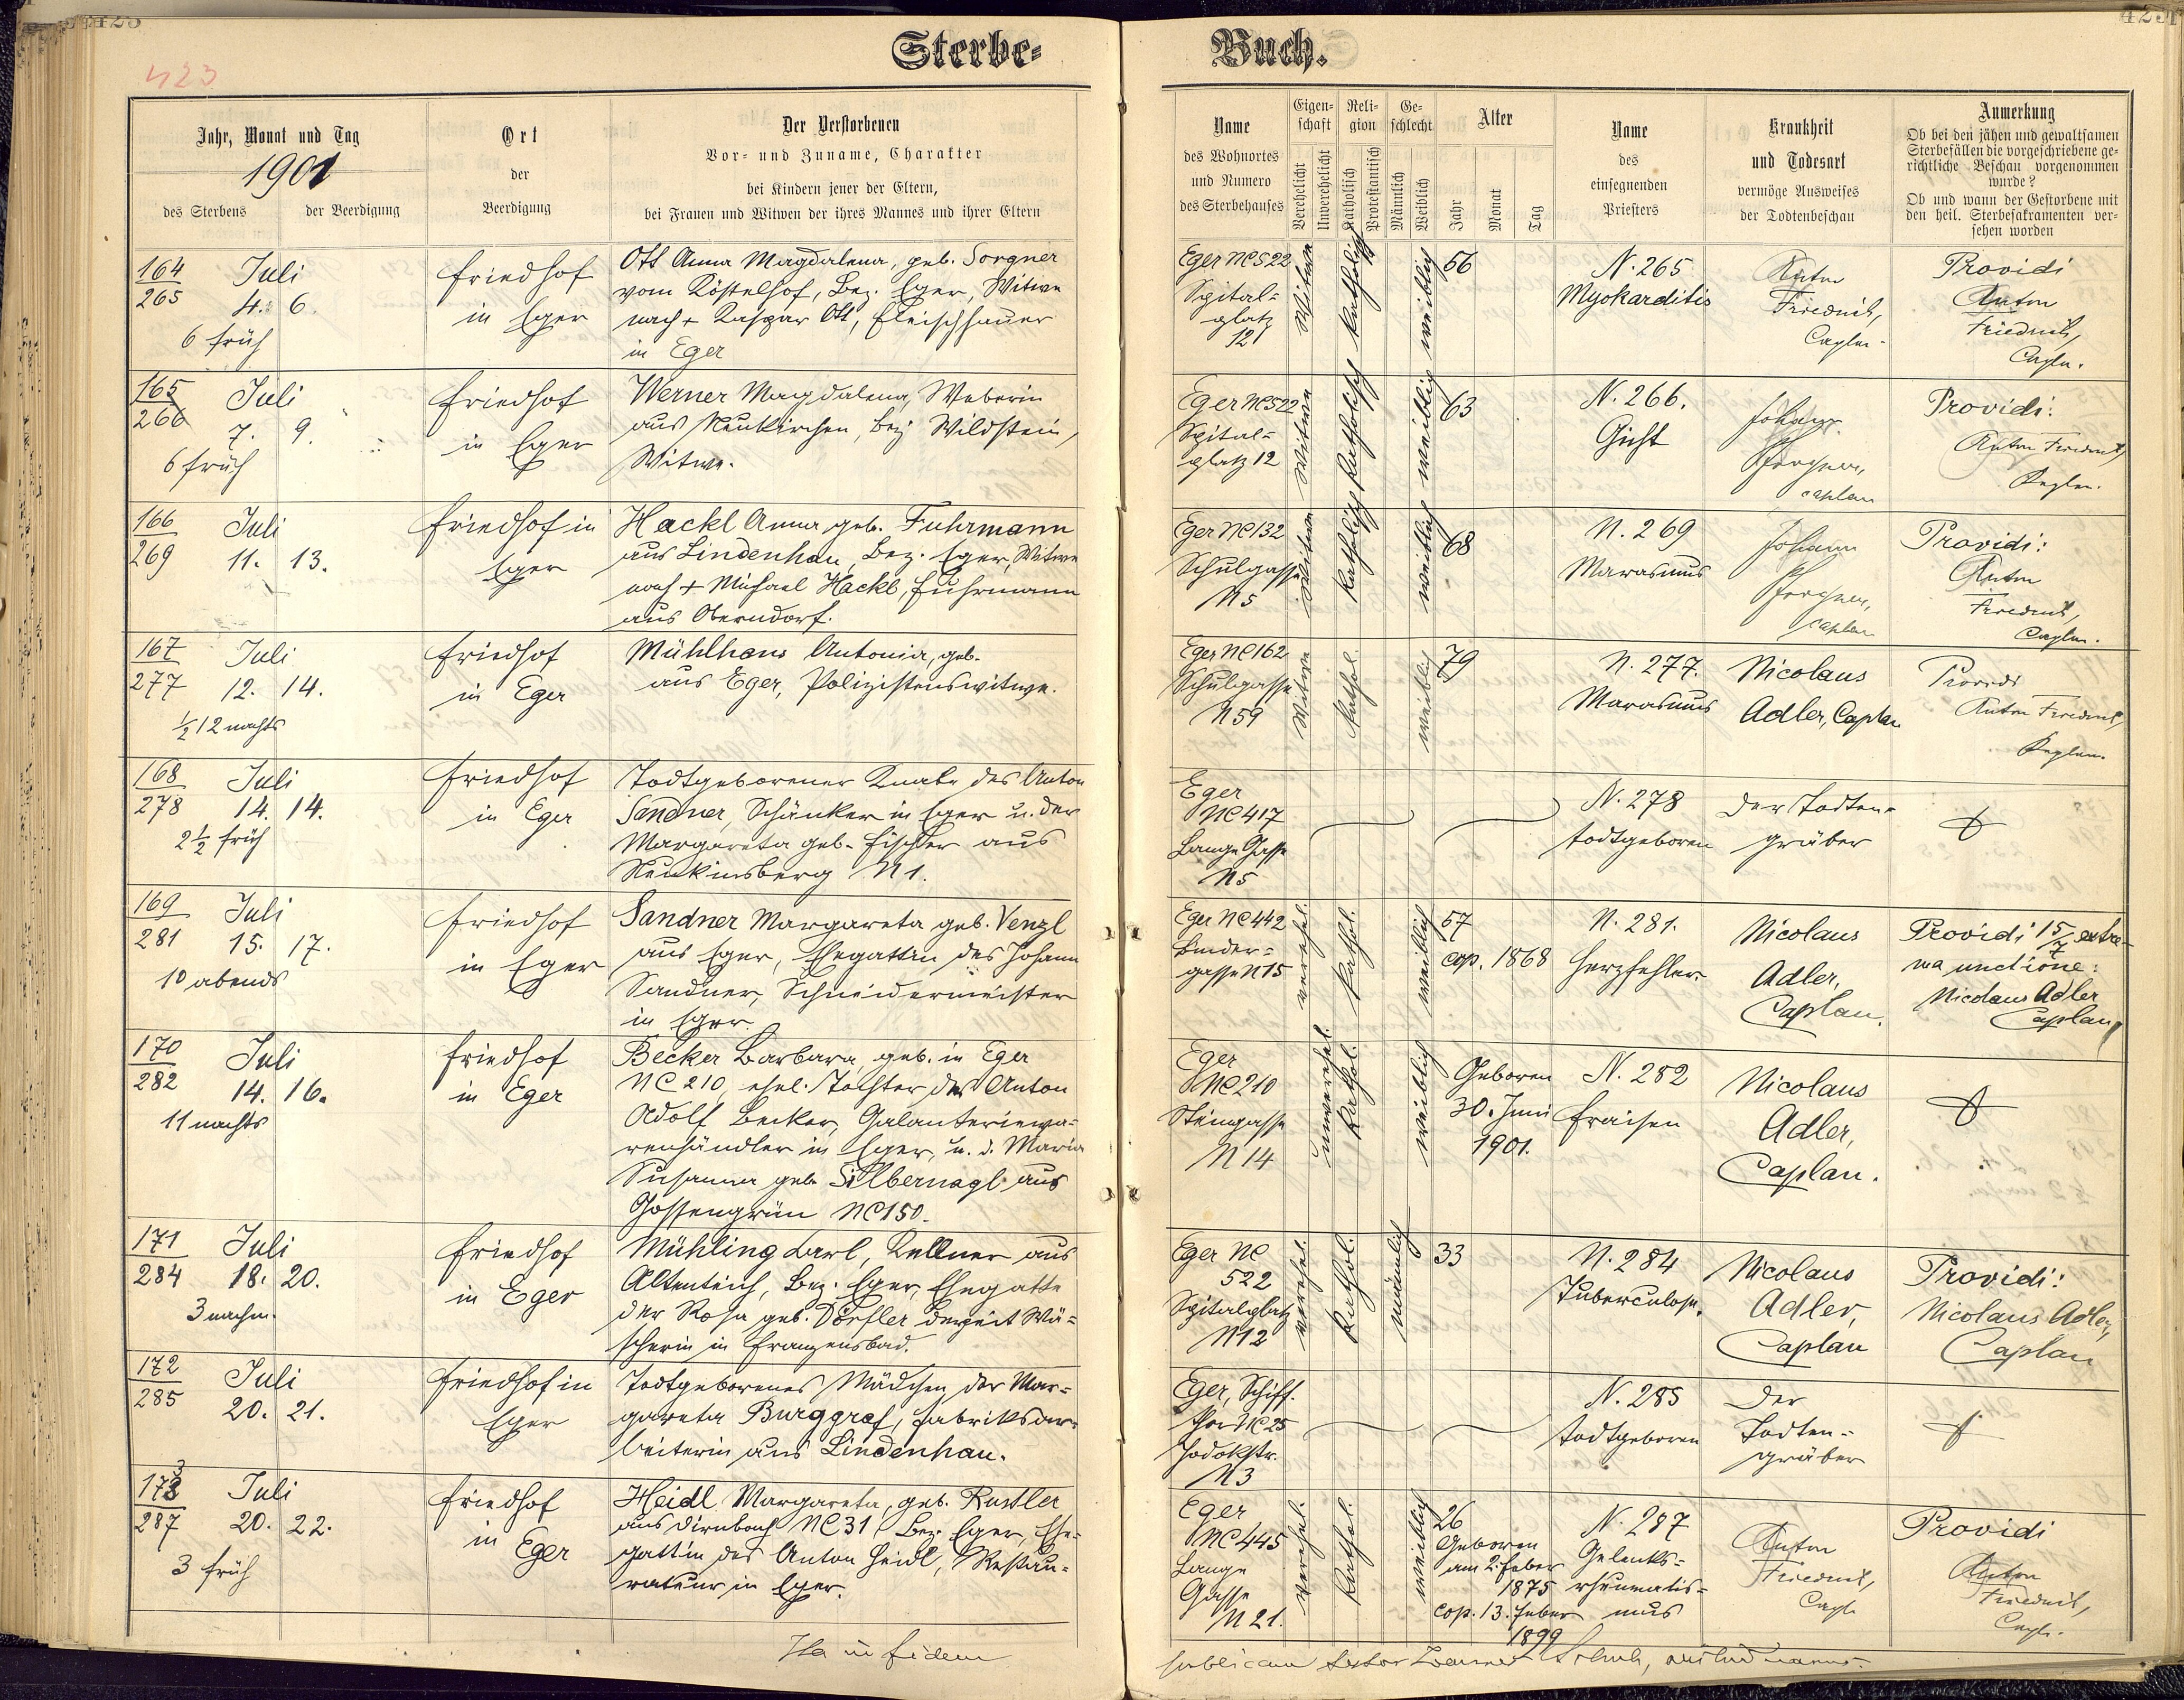 423
Sterbe-
Buch.
Jahr, Monat und Tag
1901
des Sterbens
der Beerdigung
Ort
der
Beerdigung
Der Verstorbenen
Vor- und Zuname, Charakter
bei Kindern jener der Eltern,
bei Frauen und Witwen der ihres Mannes und ihrer Eltern
Name
des Wohnortes
und Numero
des Sterbehauses
Eigen-
schaft
Verehelicht
Unverehelicht
Reli-
gion
Katholisch
Protestantisch
Ge-
schlecht
Männlich
Weiblich
Alter
Jahr
Monat
Tag
Name
des
einsegnenden
Priesters
Krankheit
und Todesart
vermöge Ausweises
der Todtenbeschau
Anmerkung
Ob bei den jähen und gewaltsamen
Sterbefällen die vorgeschriebene ge-
richtliche Beschau vorgenommen
wurde?
Ob und wann der Gestorbene mit
den heil. Sterbesakramenten ver-
sehen worden
164
265
Juli
4. 6.
6 früh
Friedhof
in Eger
Ott Anna Magdalena, geb. Sorgner
vom Köstelhof, Bez. Eger, Witwe
nach + Kaspar Ott, Fleischhauer
in Eger
Eger NC 522
Spital-
platz
12
Witwe
katholisch
weiblich
56
N. 265
Myokarditis
Anton
Friedrich,
Caplan.
Providi
Anton
Friedrich,
Caplan.
165
266
Juli
7. 9.
6 früh
Friedhof
in Eger
Werner Magdalena, Weberin
aus Neukirchen, Bez. Wildstein,
Witwe.
Eger NC 522
Spital-
platz 12
Witwe
katholisch
weiblich
63
N. 266.
Gicht
Johann
caplan
Providi:
Anton Friedrich,
Kaplan.
166
269
Juli
11. 13.
Friedhof in
Eger
Hackl Anna geb. Fuhrmann
aus Lindenhau, Bez. Eger, Witwe
nach + Michael Hackl, Fuhrmann
aus Oberndorf.
Eger NC 132
Schulgasse
N 5
Witwe
katholisch
weiblich
68
N. 269
Marasmus
Johann
caplan
Providi:
Anton
Friedrich,
Caplan.
167
277
Juli
12. 14.
½ 12 nachts
Friedhof
in Eger
Mühlhans Antonia, geb.
aus Eger, Polizistenswitwe.
Eger NC 162
Schulgasse
N 59
Witwe
kathol.
weiblich
79
N. 277.
Marasmus
Nicolaus
Adler, Caplan
Providi
Anton Friedrich,
Kaplan.
168
278
Juli
14. 14.
2½ früh
Friedhof
in Eger
Todtgeborener Knabe des Anton
Sandner, Schänker in Eger u. der
Margareta geb. Fischer aus
Neukinsberg N 1.
Eger
NC 417
Lange Gasse
N 5
N. 278
todtgeboren
Der Todten-
gräber
169
281
Juli
15. 17.
10 abends
Friedhof
in Eger
Sandner Margareta geb. Venzl
aus Eger, Ehegattin des Johann
Sandner, Schneidermeister
in Eger.
Eger NC 442
Binder-
gasse N 15
verehel.
kathol.
weiblich
57
cop. 1868
N. 281.
Herzfehler
Nicolaus
Adler,
Caplan.
Providi 15/7 extre-
ma unctione:
Nicolaus Adler
Caplan
170
282
Juli
14. 16.
11 nachts
Friedhof
in Eger
Becker Barbara, geb. in Eger
NC 210, ehel. Tochter des Anton
Adolf Becker, Galanteriewa-
renhändler in Eger, u. d. Maria
Susanna geb. Silbernagl aus
Gossengrün NC 150.
Eger
NC 210
Steingasse
N 14
unverehel.
kathol.
weiblich
Geboren
30. Juni
1901.
N. 282
Fraisen
Nicolaus
Adler,
Caplan.
171
284
Juli
18. 20.
3 nachm.
Friedhof
in Eger
Mühling Karl, Kellner aus
Altenteich, Bez. Eger, Ehegatte
der Rosa geb. Dörfler derzeit Wä-
scherin in Franzensbad.
Eger NC
522
Spitalplatz
N 12
verehel.
kathol.
männlich
33
N. 284
Tuberculose.
Nicolaus
Adler,
Caplan
Providi:
Nicolaus Adler,
Caplan
172
285
Juli
20. 21.
Friedhof in
Eger
Todtgeborenes Mädchen der Mar-
gareta Burggraf, Fabriksar-
beiterin aus Lindenhau.
Eger, Schiff-
thor NC 25
Jodokstr.
N 3
N. 285
todtgeboren
Der
Todten-
gräber
173
287
Juli
20. 22.
3 früh
Friedhof
in
Eger
Heidl Margareta, geb. Rustler
aus Dirnbach NC 31, Bez. Eger, Ehe-
gattin des Anton Heidl, Restau-
rateur in Eger.
Eger
NC 445
Lange
Gasse
N 21.
verehel.
kathol.
weiblich
26
Geboren
am 2. Feber
1875
cop. 13. Feber
1899
N. 287
Gelenks-
rheumatis-
mus
Anton
Friedrich,
Capl.
Providi
Anton
Friedrich,
Capl.
Ita in fidem